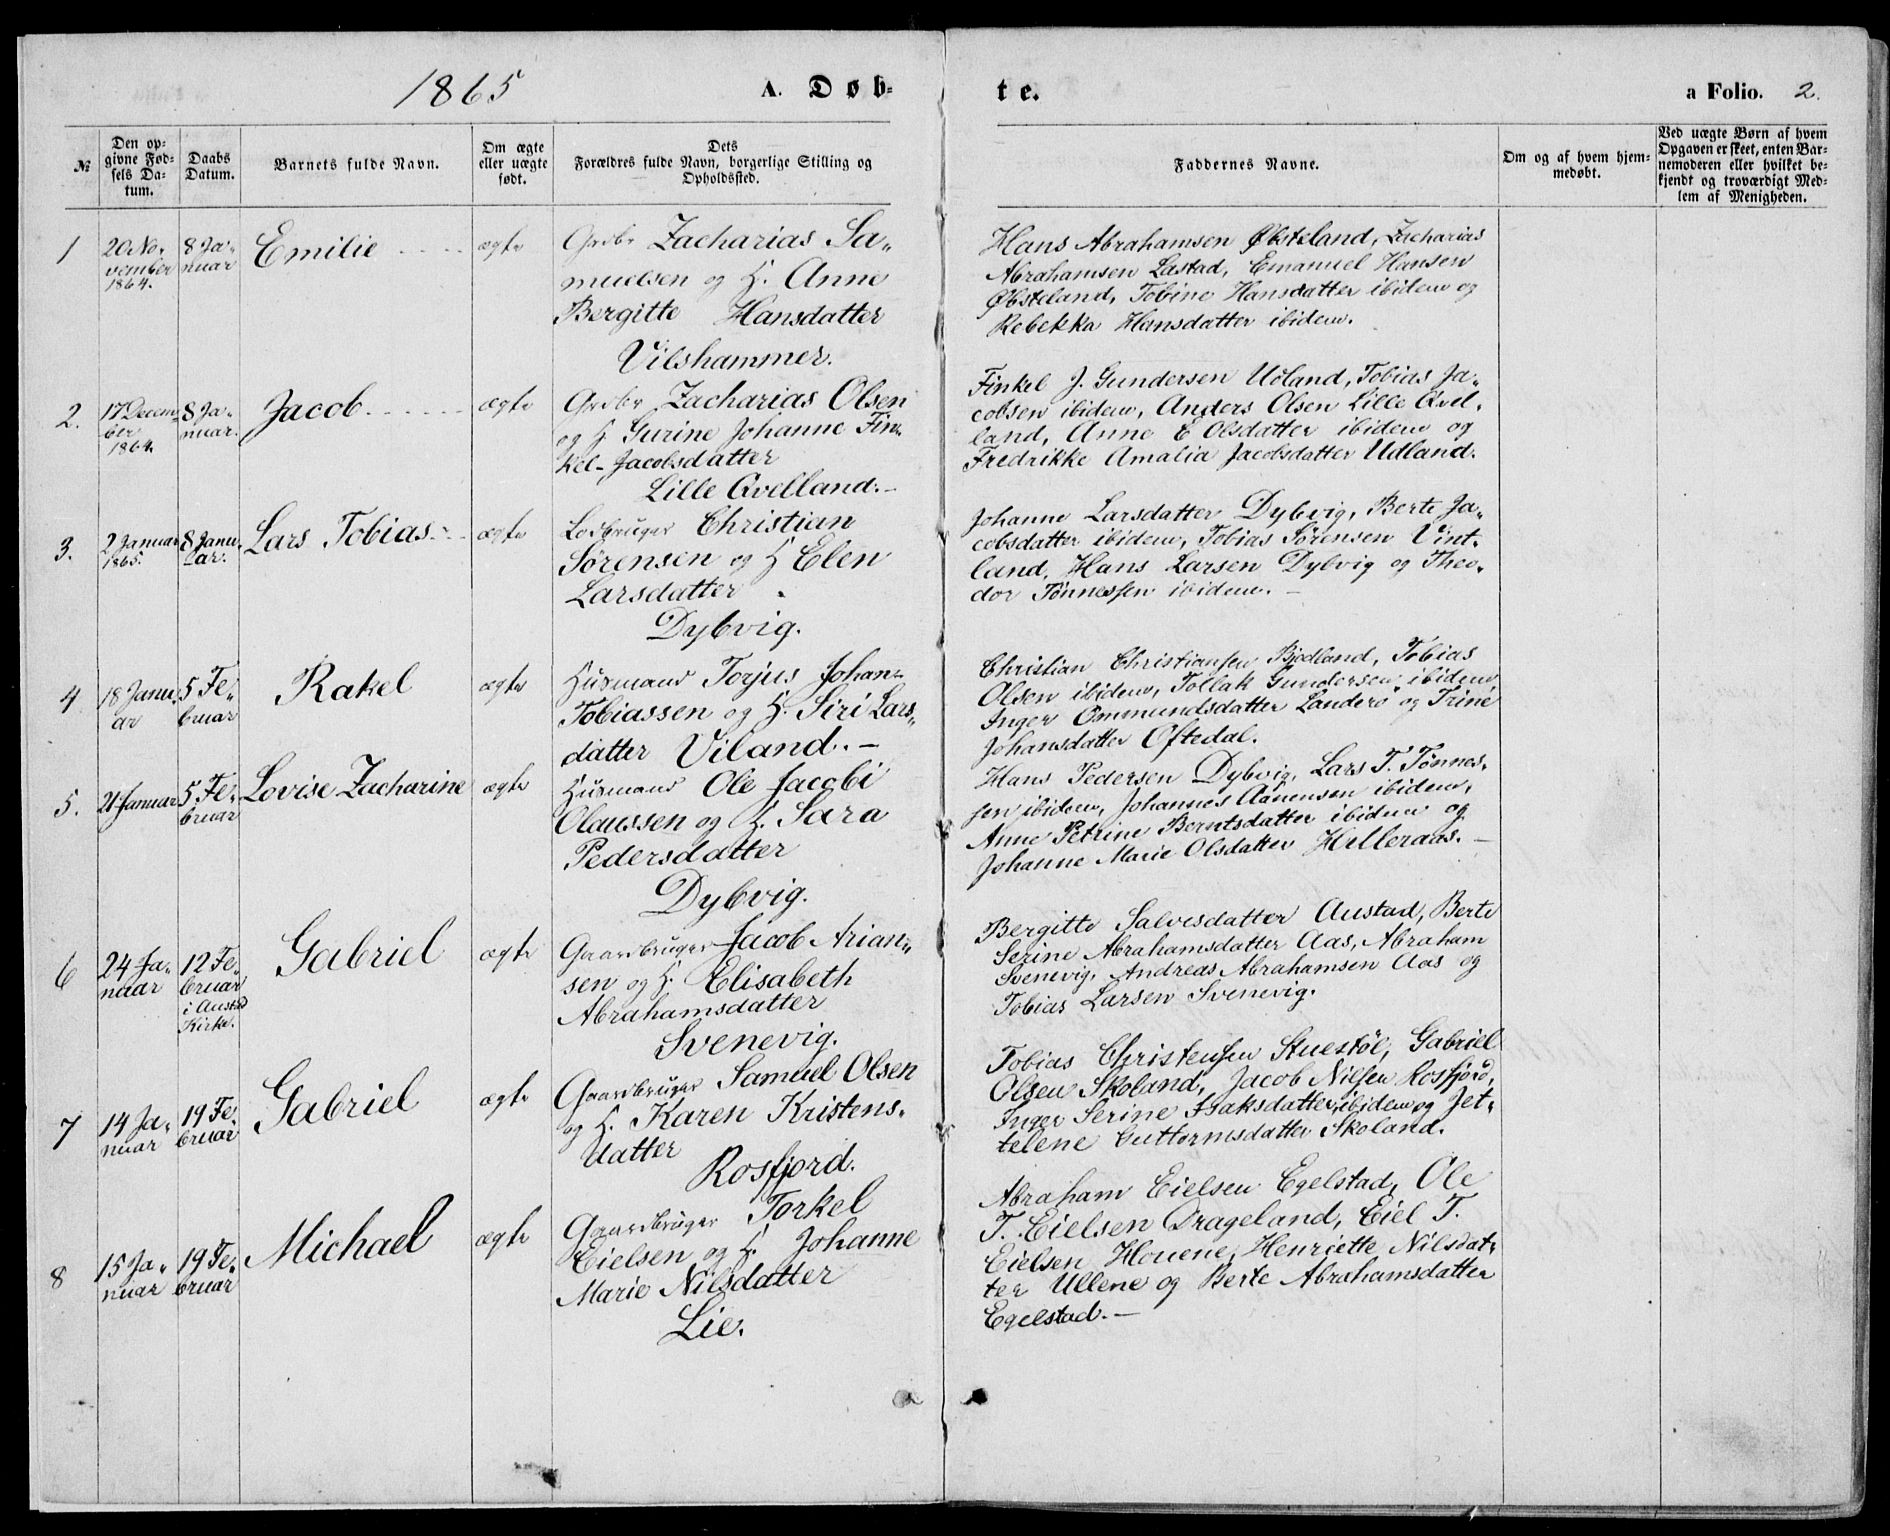 1865
A. Døb-
te.
a Folio. 2.
№
Den op-
givne Fød-
sels Da-
tum.
Daabs
Datum.
Barnets fulde Navn.
Om ægte
eller uægte
født.
Dets
Forældres fulde Navn, borgerlige Stilling og
Opholdssted.
Faddernes Navne.
Om og af hvem hjem-
medøbt.
Ved uægte Børn af hvem
Opgaven er skeet, enten Bar-
nemoderen eller hvilket be-
kjendt og troværdigt Med-
lem af Menigheden.
1
20 No-
vember
1864.
8 Ja-
nuar
Emilie
ægte
Grdbr Zacharias Sa-
muelsen og H. Anne
Bergitte Hansdatter
Vilshammer.
Hans Abrahamsen Øbsteland, Zacharias
Abrahamsen Lastad, Emanuel Hansen
Øbsteland, Tobine Hansdatter ibidem og
Rebekka Hansdatter ibidem.
2.
17 Decem-
ber
1864.
8 Ja-
nuar.
Jacob
ægte
Grdbr Zacharias Olsen
og H Gurine Johanne Fin-
kel-Jacobsdatter
Lille Qvelland.-
Finkel J. Gundersen Udland, Tobias Ja-
cobsen ibidem, Anders Olsen Lille Qvel-
land, Anne E Olsdatter ibidem og
Fredrikke Amalia Jacobsdatter Udland.
3.
2 Januar
1865.
8 Janu-
ar.
Lars Tobias
ægte
Lodbruger Christian
Sørensen og H Elen
Larsdatter
Dybvig.
Johanne Larsdatter Dybvig, Berte Ja-
cobsdatter ibidem, Tobias Sørensen Vint-
land, Hans Larsen Dybvig og Theo-
dor Tønnessen ibidem. -
4
18 Janu-
ar
5 Fe-
bruar
Rakel
ægte
Husmand Torjus Johan
Tobiassen og H. Siri Lars-
datter Viland. -
Christian Christiansen Bjødland, Tobias
Olsen ibidem, Tollak Gundersen ibidem
Inger Ommundsdatter Landerø og Trine
Johansdatter Oftedal.
5.
21 Januar
5 Fe-
bruar
Lovise Zacharine
ægte
Husmand Ole Jacobi
Olaussen og H. Sara
Pedersdatter
Dybvig.
Hans Pedersen Dybvig, Lars T. Tønnes-
sen ibidem, Johannes Aanensen ibidem,
Anne Petrine Berntsdatter ibidem og
Johanne Marie Olsdatter Helleraas. -
6
24 Ja-
nuar
12 Fe-
bruar
i Austad
Kirke.
Gabriel
ægte
Gaardbruger Jacob Arian-
sen og H. Elisabeth
Abrahamsdatter
Svenevig.
Bergitte Salvesdatter Austad, Berte
Serine Abrahamsdatter Aas, Abraham
Svenevig, Andreas Abrahamsen Aas og
Tobias Larsen Svenevig.
7
14 Ja-
nuar
19 Fe-
bruar
Gabriel
ægte
Gaardbruger Samuel Olsen
og H. Karen Kristens-
datter
Rosfjord.
Tobias Christensen Stuestøl, Gabriel
Olsen Skoland, Jacob Nilsen Rosfjord,
Inger Serine Isaksdatter ibidem og Jet-
telene Guttormsdatter Skoland.
8
15 Ja-
nuar
19 Fe-
bruar
Michael
ægte
Gaardbruger Torkel
Eielsen og H. Johanne
Marie Nilsdatter
Lie.
Abraham Eielsen Egelstad, Ole
T. Eielsen Drageland, Eiel T.
Eielsen Houene, Henriette Nilsdat-
ter Ullene og Berte Abrahamsdatter
Egelstad. -